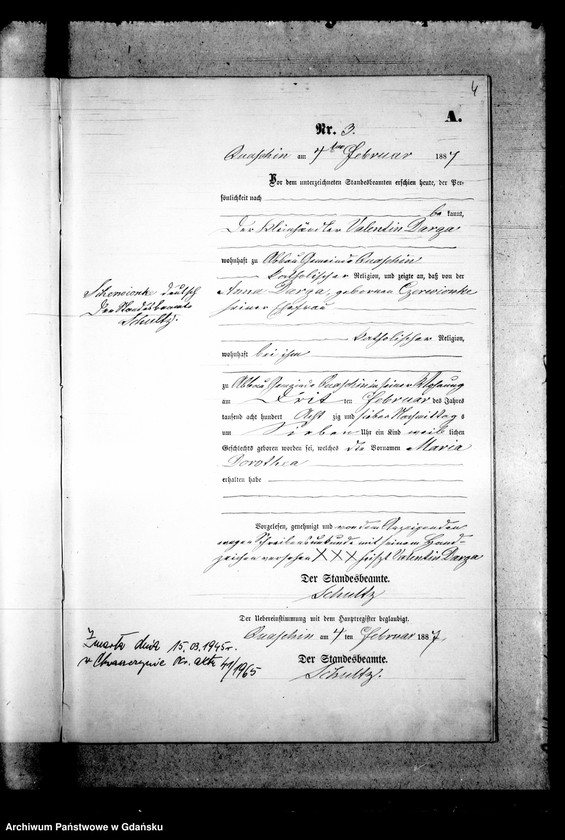 4
A.
Nr. 3.
Quaschin am 4ten Februar 1887
Vor dem unterzeichneten Standesbeamten erschien heute, der Per-
sönlichkeit nach
be kannt,
Der Kleinhändler Valentin Darga
wohnhaft zu Abbau Gemeinde Quaschin
katholischer Religion, und zeigte an, daß von der
Anna Darga, geborenen Czerwionke
seiner Ehefrau
katholischer Religion,
wohnhaft bei ihm
zu Abbau Gemeinde Quaschin in seiner Wohnung
am Drit ten Februar des Jahres
tausend acht hundert Acht zig und sieben Nachmittags
um Sieben Uhr ein Kind weib lichen
Geschlechts geboren worden sei, welches die Vornamen Maria
Dorothea
erhalten habe
Vorgelesen, genehmigt und von dem Anzeigenden
wegen Schreibensunkunde mit seinem Hand-
zeichen versehen XXX heißt Valentin Darga
Der Standesbeamte.
Schultz
Der Uebereinstimmung mit dem Hauptregister beglaubigt.
Quaschin am 4 ten Februar 1887.
Der Standesbeamte.
Schultz.
deutsch
Der Standesbeamte
Schultz.
Zmarła dnia 15.03.1945r.
w Chwaszczynie Nr. aktu 41/1965
Archiwum Państwowe w Gdańsku